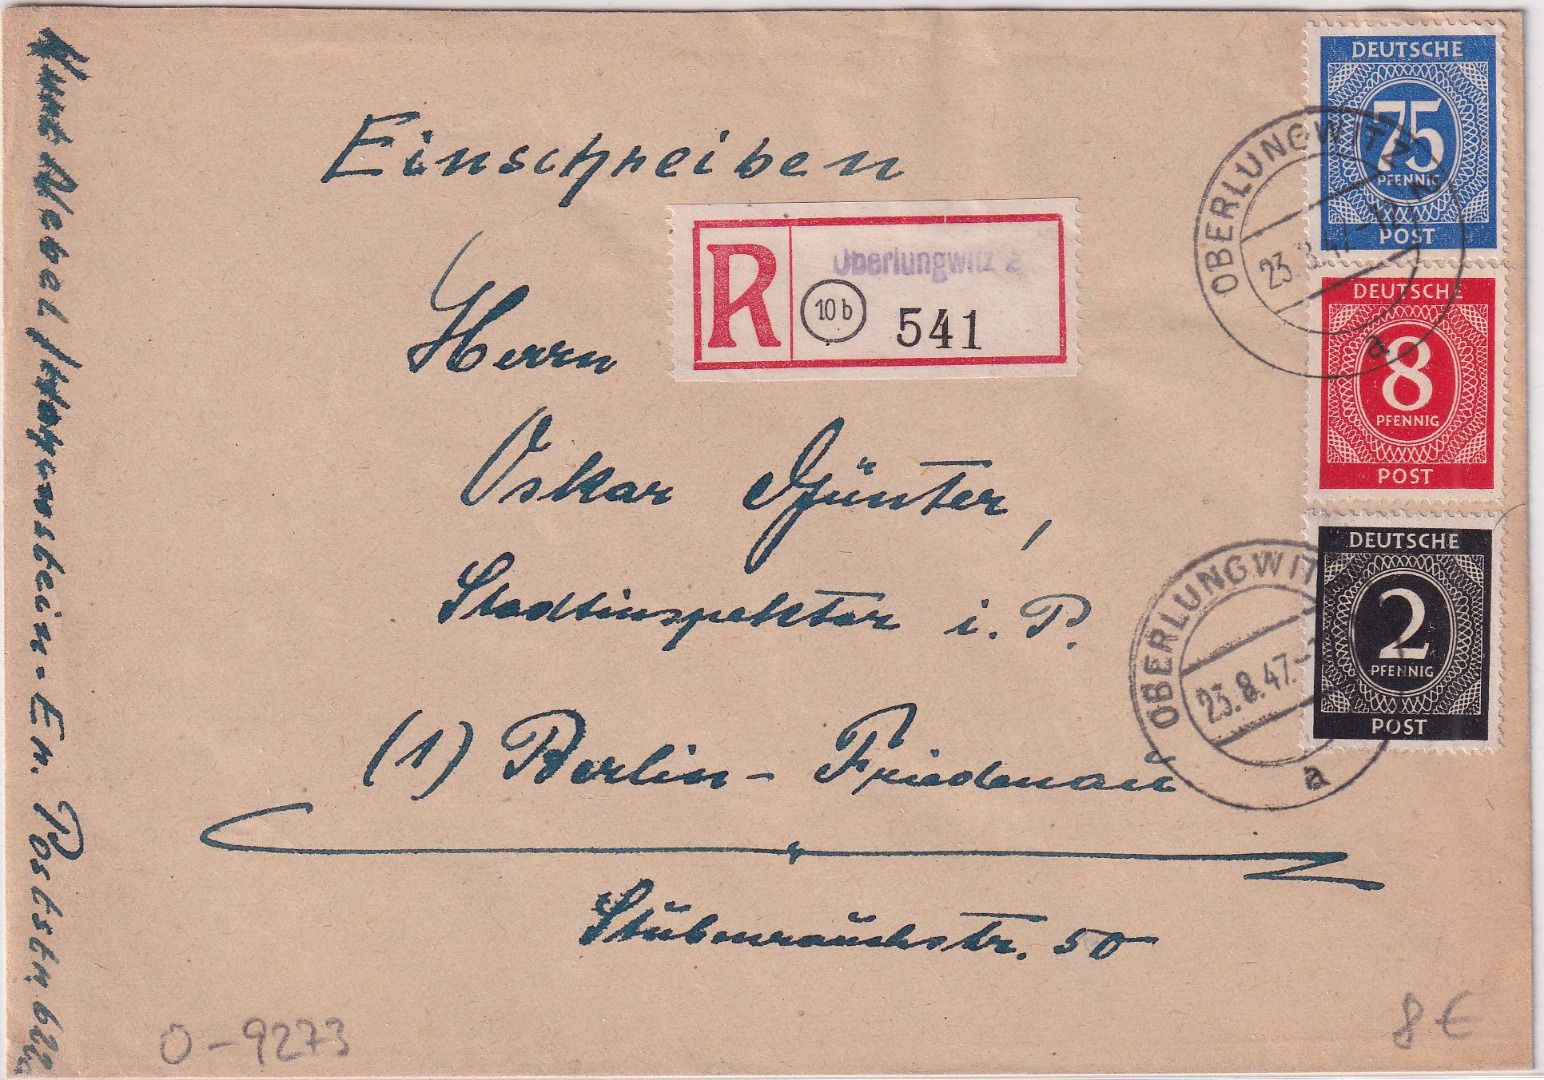 Einschreiben
R
Oberlungwitz 2
10b
541
Herrn
Oskar Günter,
Stadtinspektor i. P.
(1) Berlin-Friedenau
Stubenrauchstr. 50
DEUTSCHE
75
PFENNIG
POST
DEUTSCHE
8
PFENNIG
POST
DEUTSCHE
2
PFENNIG
POST
OBERLUNGWITZ
23.8.47
a
OBERLUNGWITZ
23.8.47.
a
Kurt Nebel, Er. Poststr. 62
O-9273
8 €